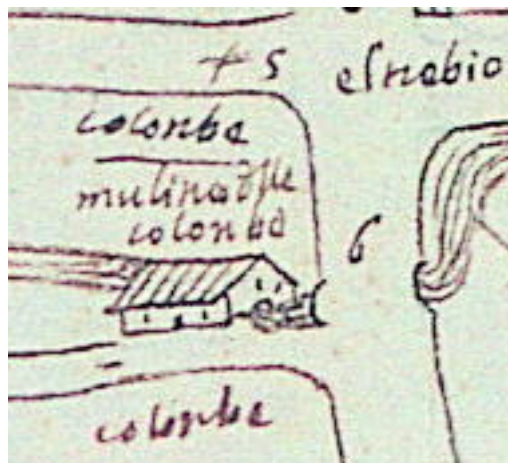 + 5
el nabio
colonba
mulina dlle
colonba
6
colonba